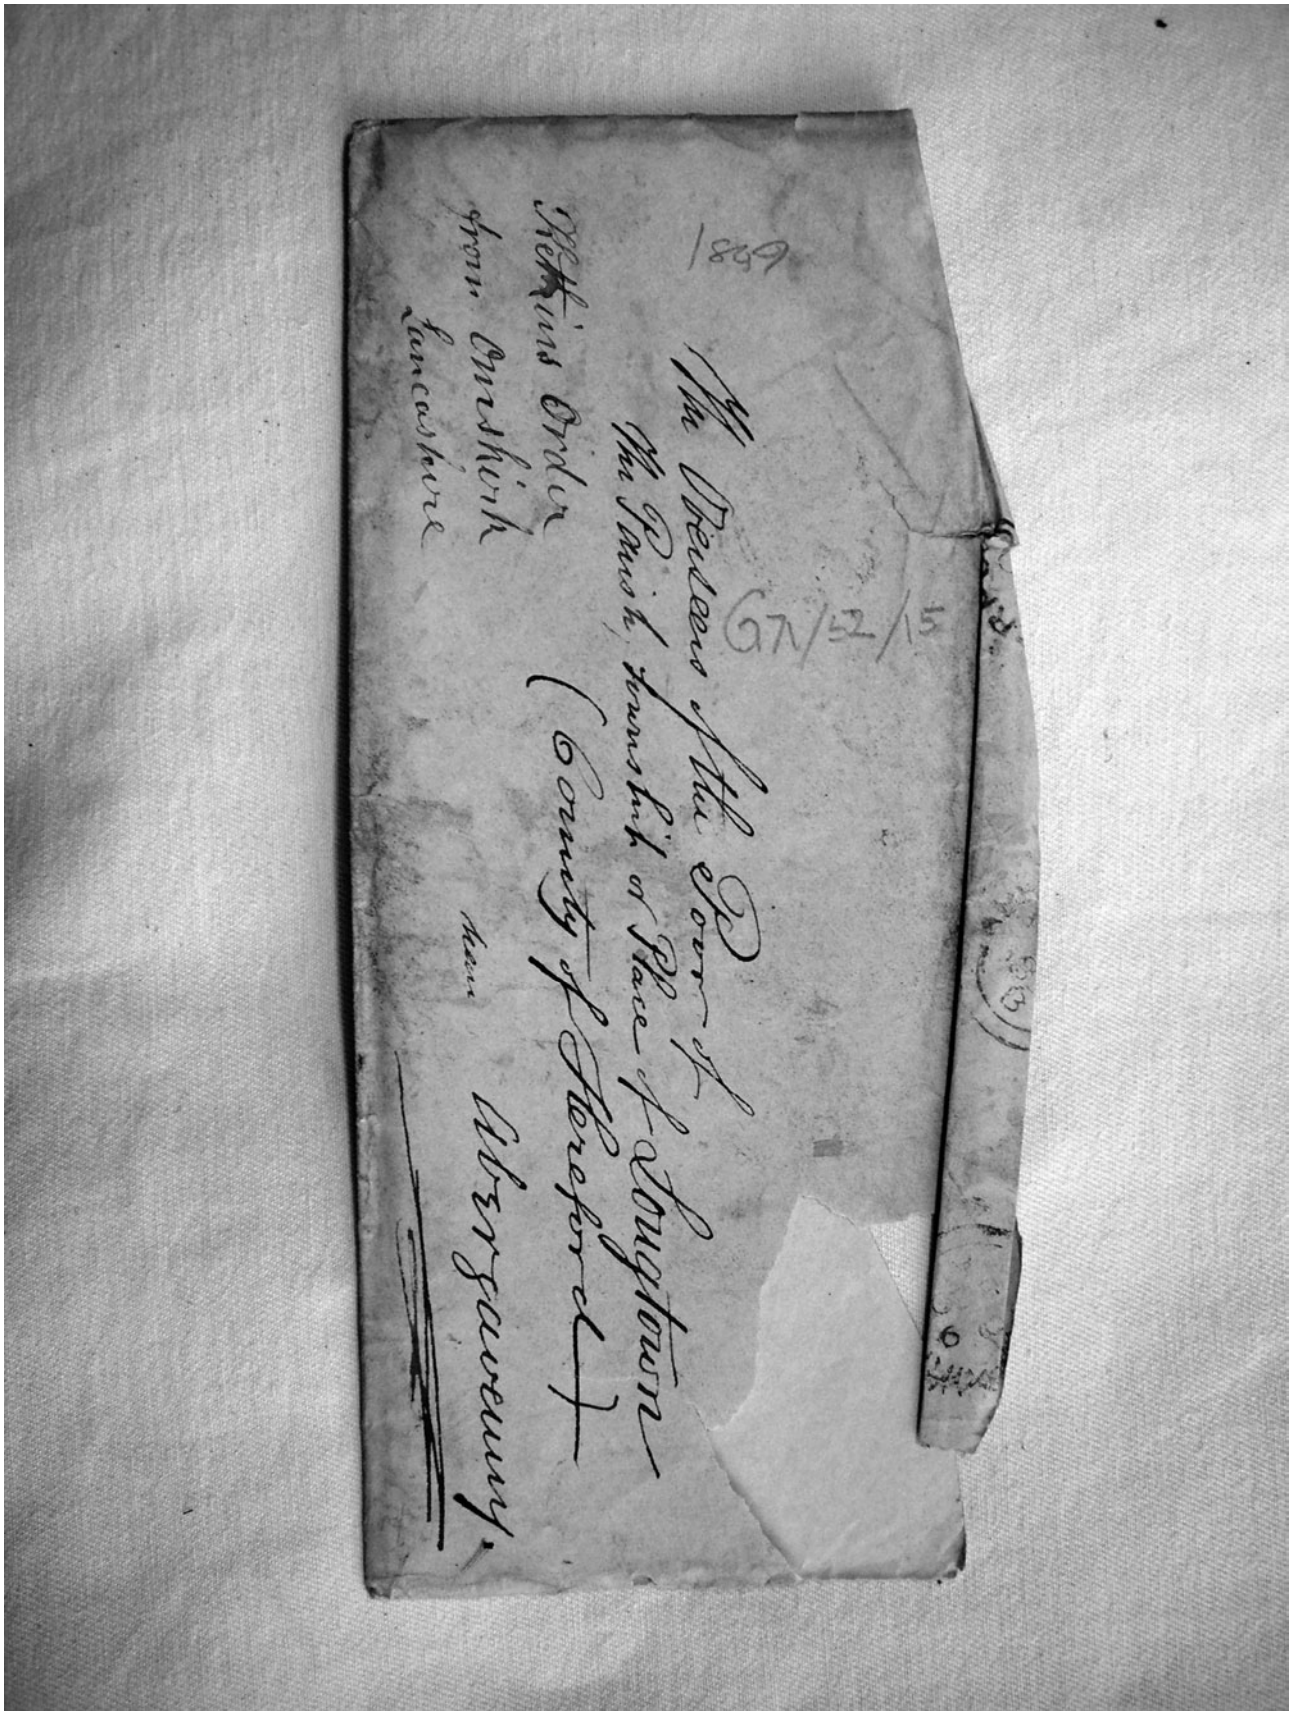 1869
G71/52/15
The Overseers of the Poor of
the Parish, township or Place of Longtown
(County of Hereford)
near Abergavenny.
Order
from Ormskirk
Lancashire